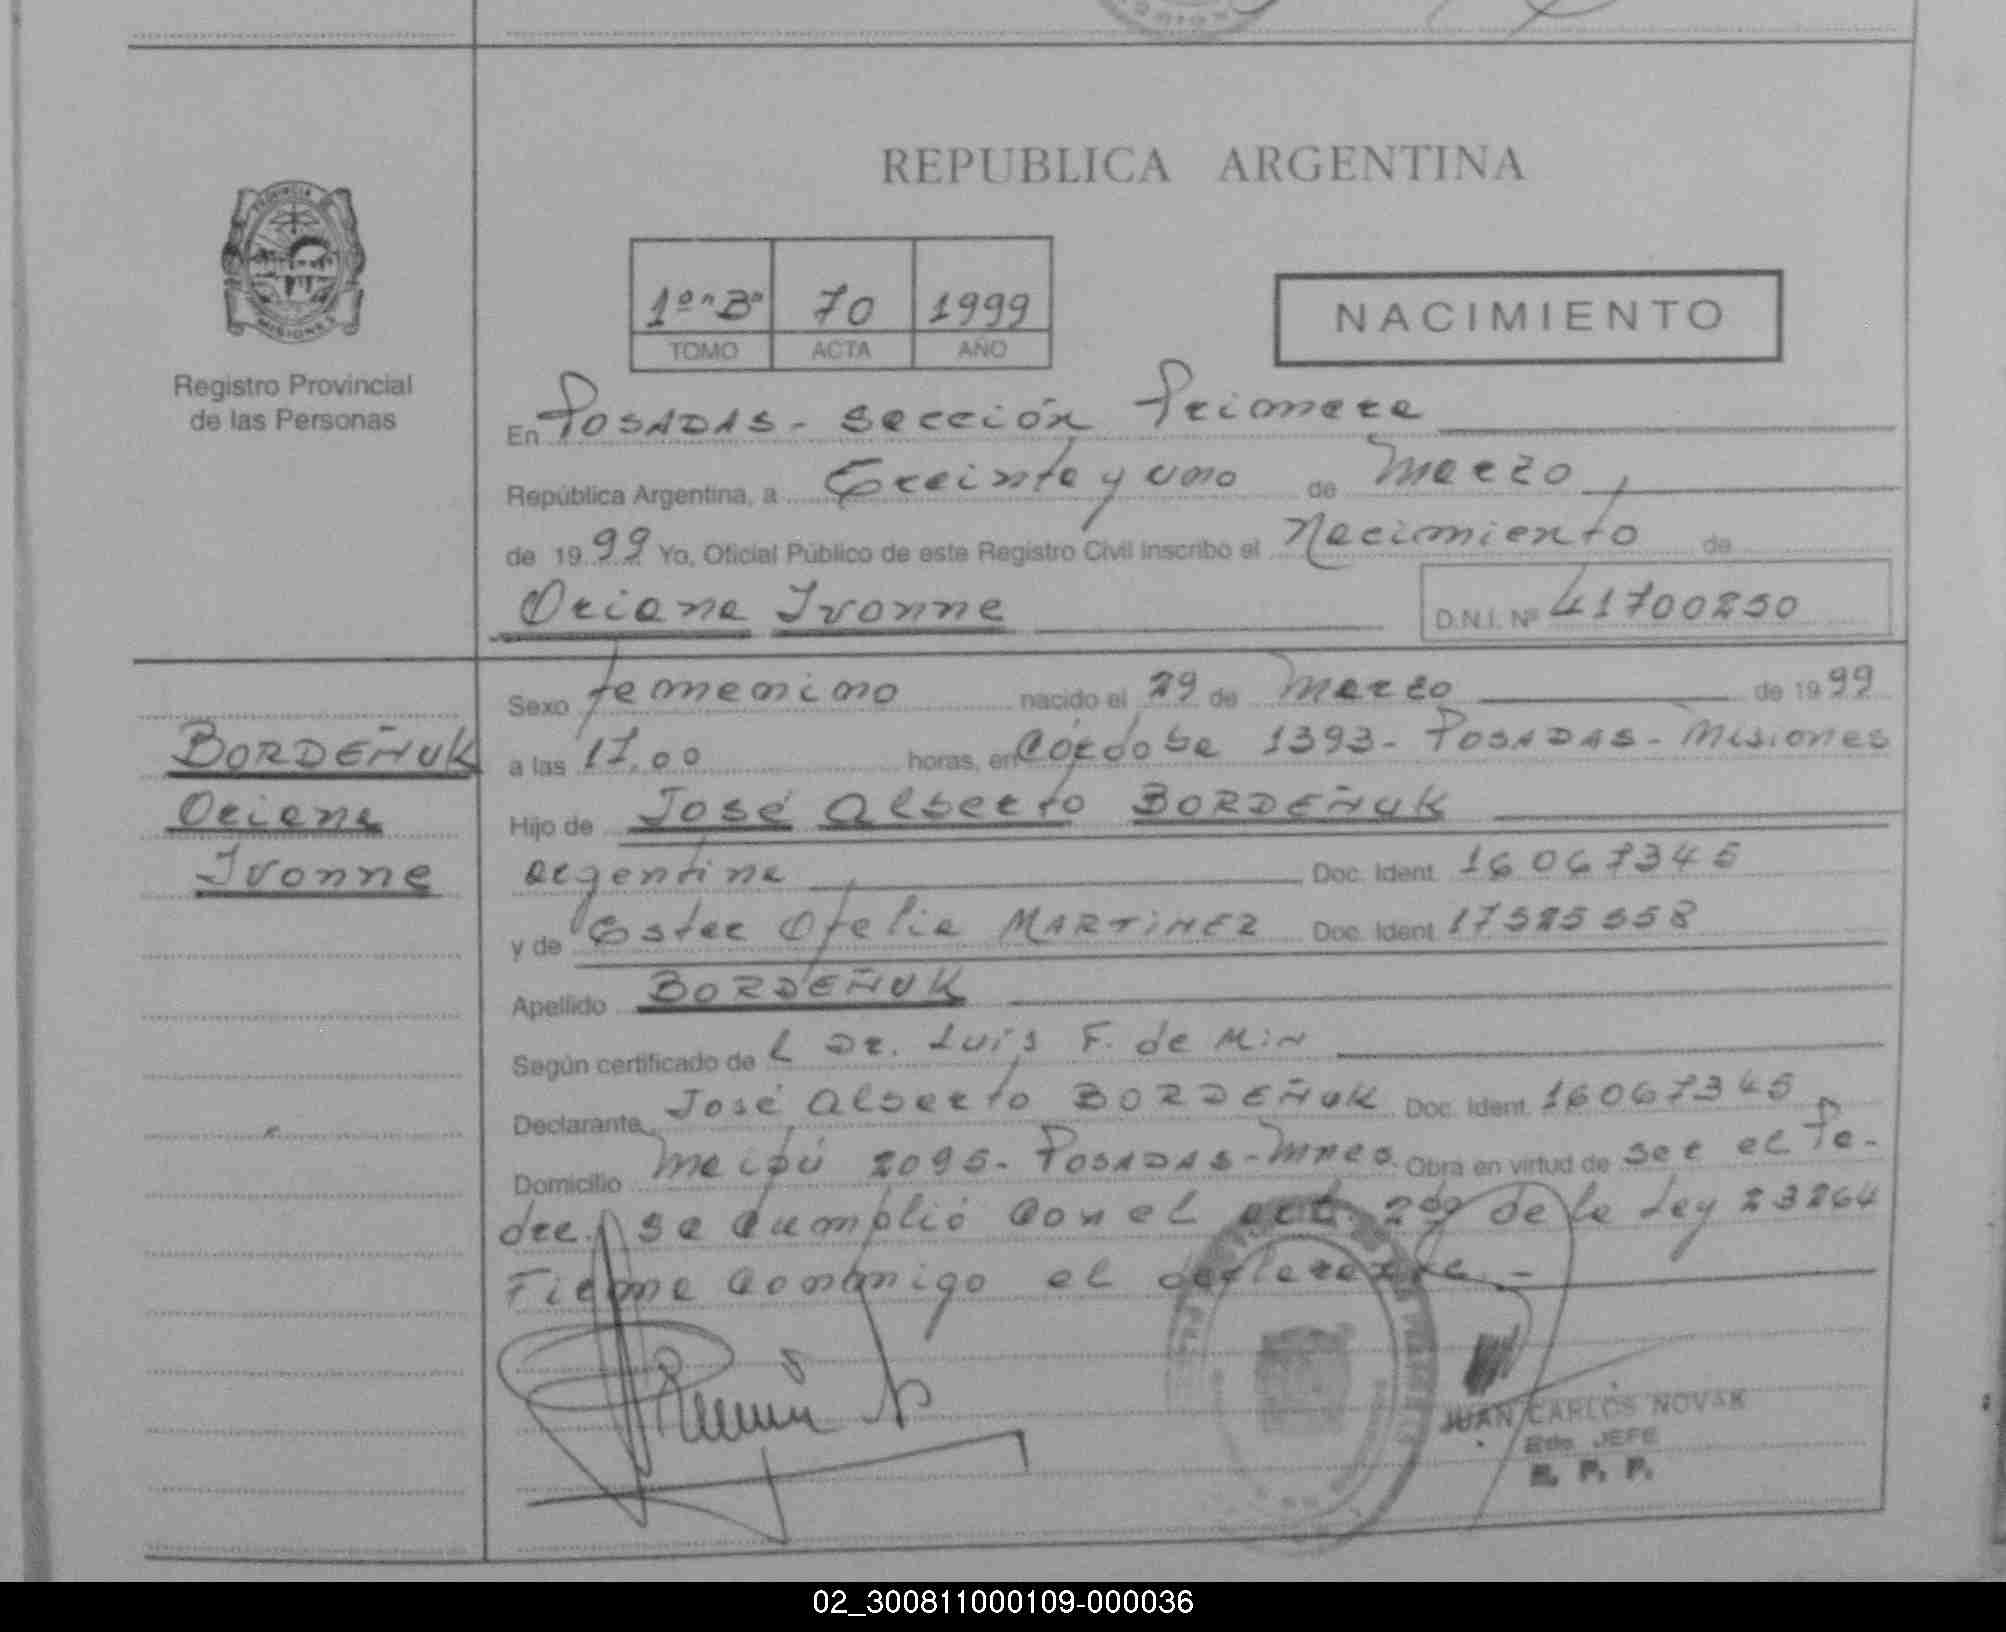 REPUBLICA ARGENTINA
PROVINCIA
MISIONES
Registro Provincial
de las Personas
1º "B" 70 1999
TOMO ACTA AÑO
NACIMIENTO
En POSADAS - Sección Primera
República Argentina, a Treinta y uno de Marzo
de 1999 Yo, Oficial Público de este Registro Civil inscribo el Nacimiento de
Oriana Ivonne D.N.I. Nº 41700250
Sexo femenino nacido el 29 de Marzo de 1999
BORDEÑUK
Oriana
Ivonne
a las 17,00 horas, en Córdoba 1393 - POSADAS - Misiones
Hijo de José Alberto BORDEÑUK
argentina Doc. Ident. 16067345
y de Ester Ofelia MARTINEZ Doc. Ident. 17525558
Apellido BORDEÑUK
Según certificado de l Dr. Luis F. de Min
Declarante José Alberto BORDEÑUK Doc. Ident. 16067345
Domicilio Maipú 2095 - POSADAS - Mnes. Obra en virtud de ser el Pa-
dre. Se cumplió con el art. 2do de la Ley 23264
Firma conmigo el declarante. -
JUAN CARLOS NOVAK
JEFE
R. P. P.
02_300811000109-000036